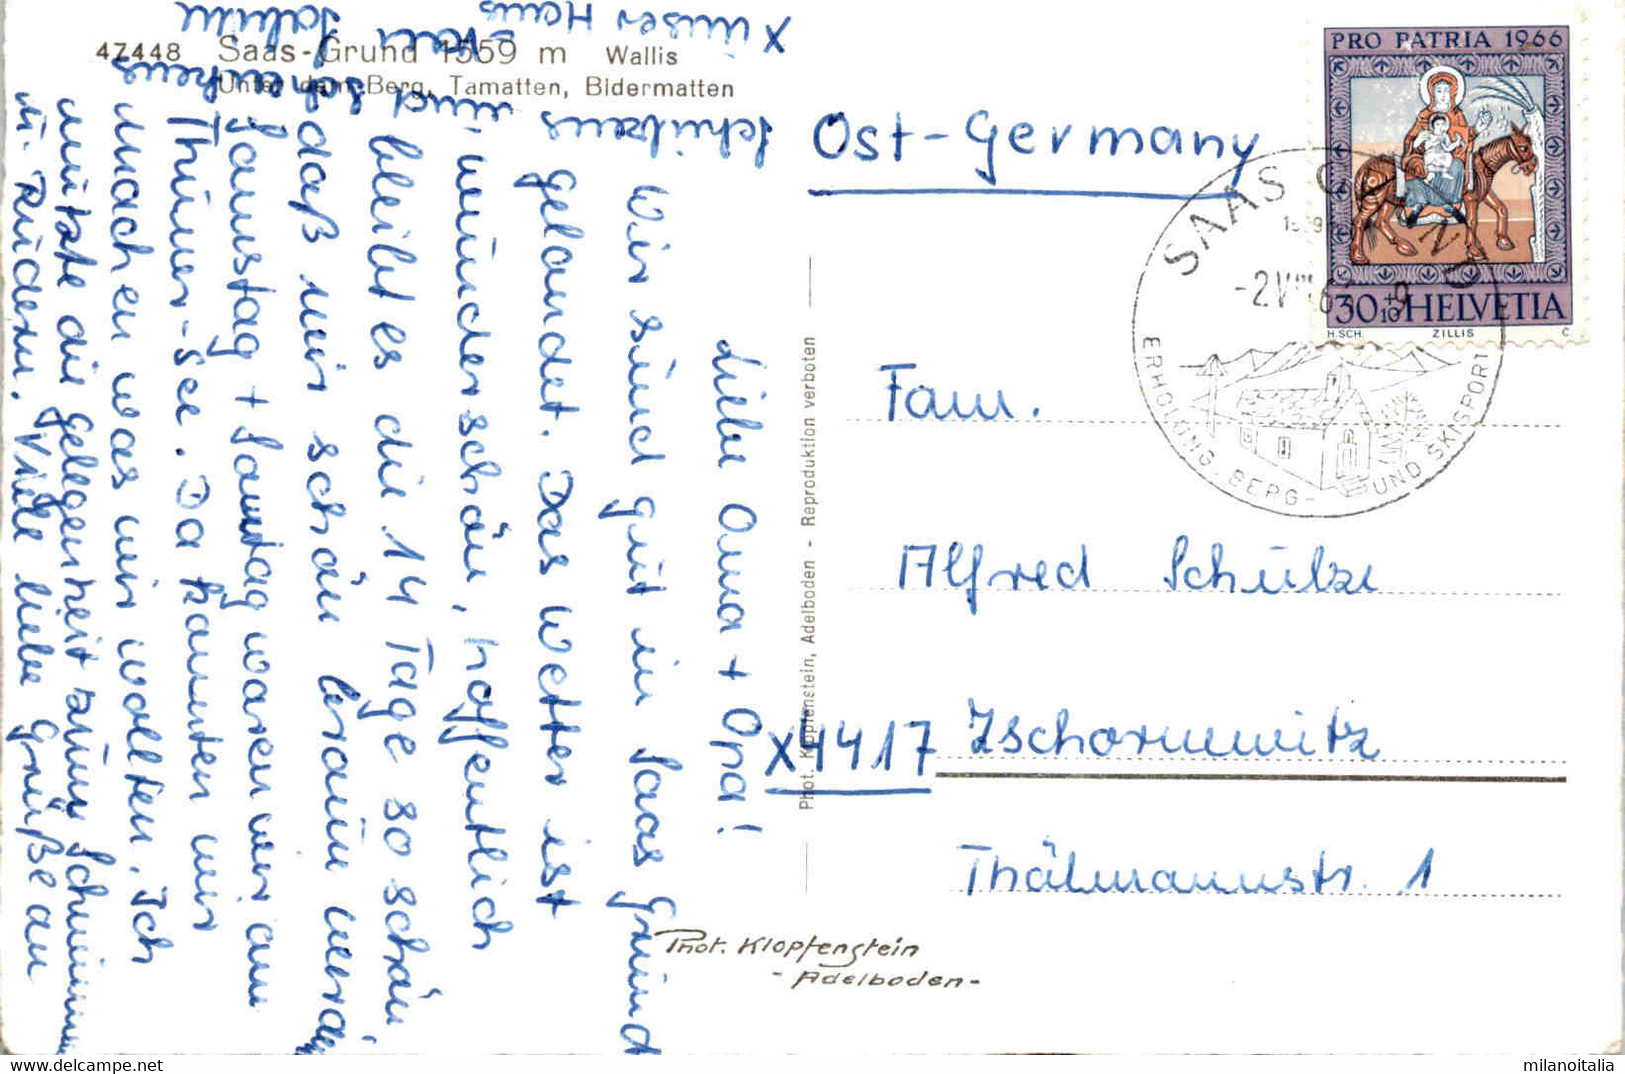 47448 Saas-Grund 1559 m Wallis
Unter dem Berg, Tamatten, Bidermatten
x unser Haus
Ost-Germany
PRO PATRIA 1966
30+10 HELVETIA
H.SCH. ZILLIS C.
SAAS GRUND
1559
-2.VIII.6
-9
ERHOLUNG, BERG- UND SKISPORT
Liebe Oma + Opa!
Wir sind gut in Saas Grund
gelandet. Das Wetter ist
wunderschön, hoffentlich
bleibt es die 14 Tage so schön
daß wir schön braun werden
Samstag + Sonntag waren wir am
Thuner-See. Da konnten wir
machen was wir wollten. Ich
nützte die Gelegenheit zum Schwimmen
u. Rudern. Viele liebe Grüße an
Schulzens
und
Phot. Klopfenstein, Adelboden - Reproduktion verboten
Fam.
Alfred Schulze
X4417 Zschornewitz
Thälmannstr. 1
Phot. Klopfenstein
- Adelboden -
milanoitalia